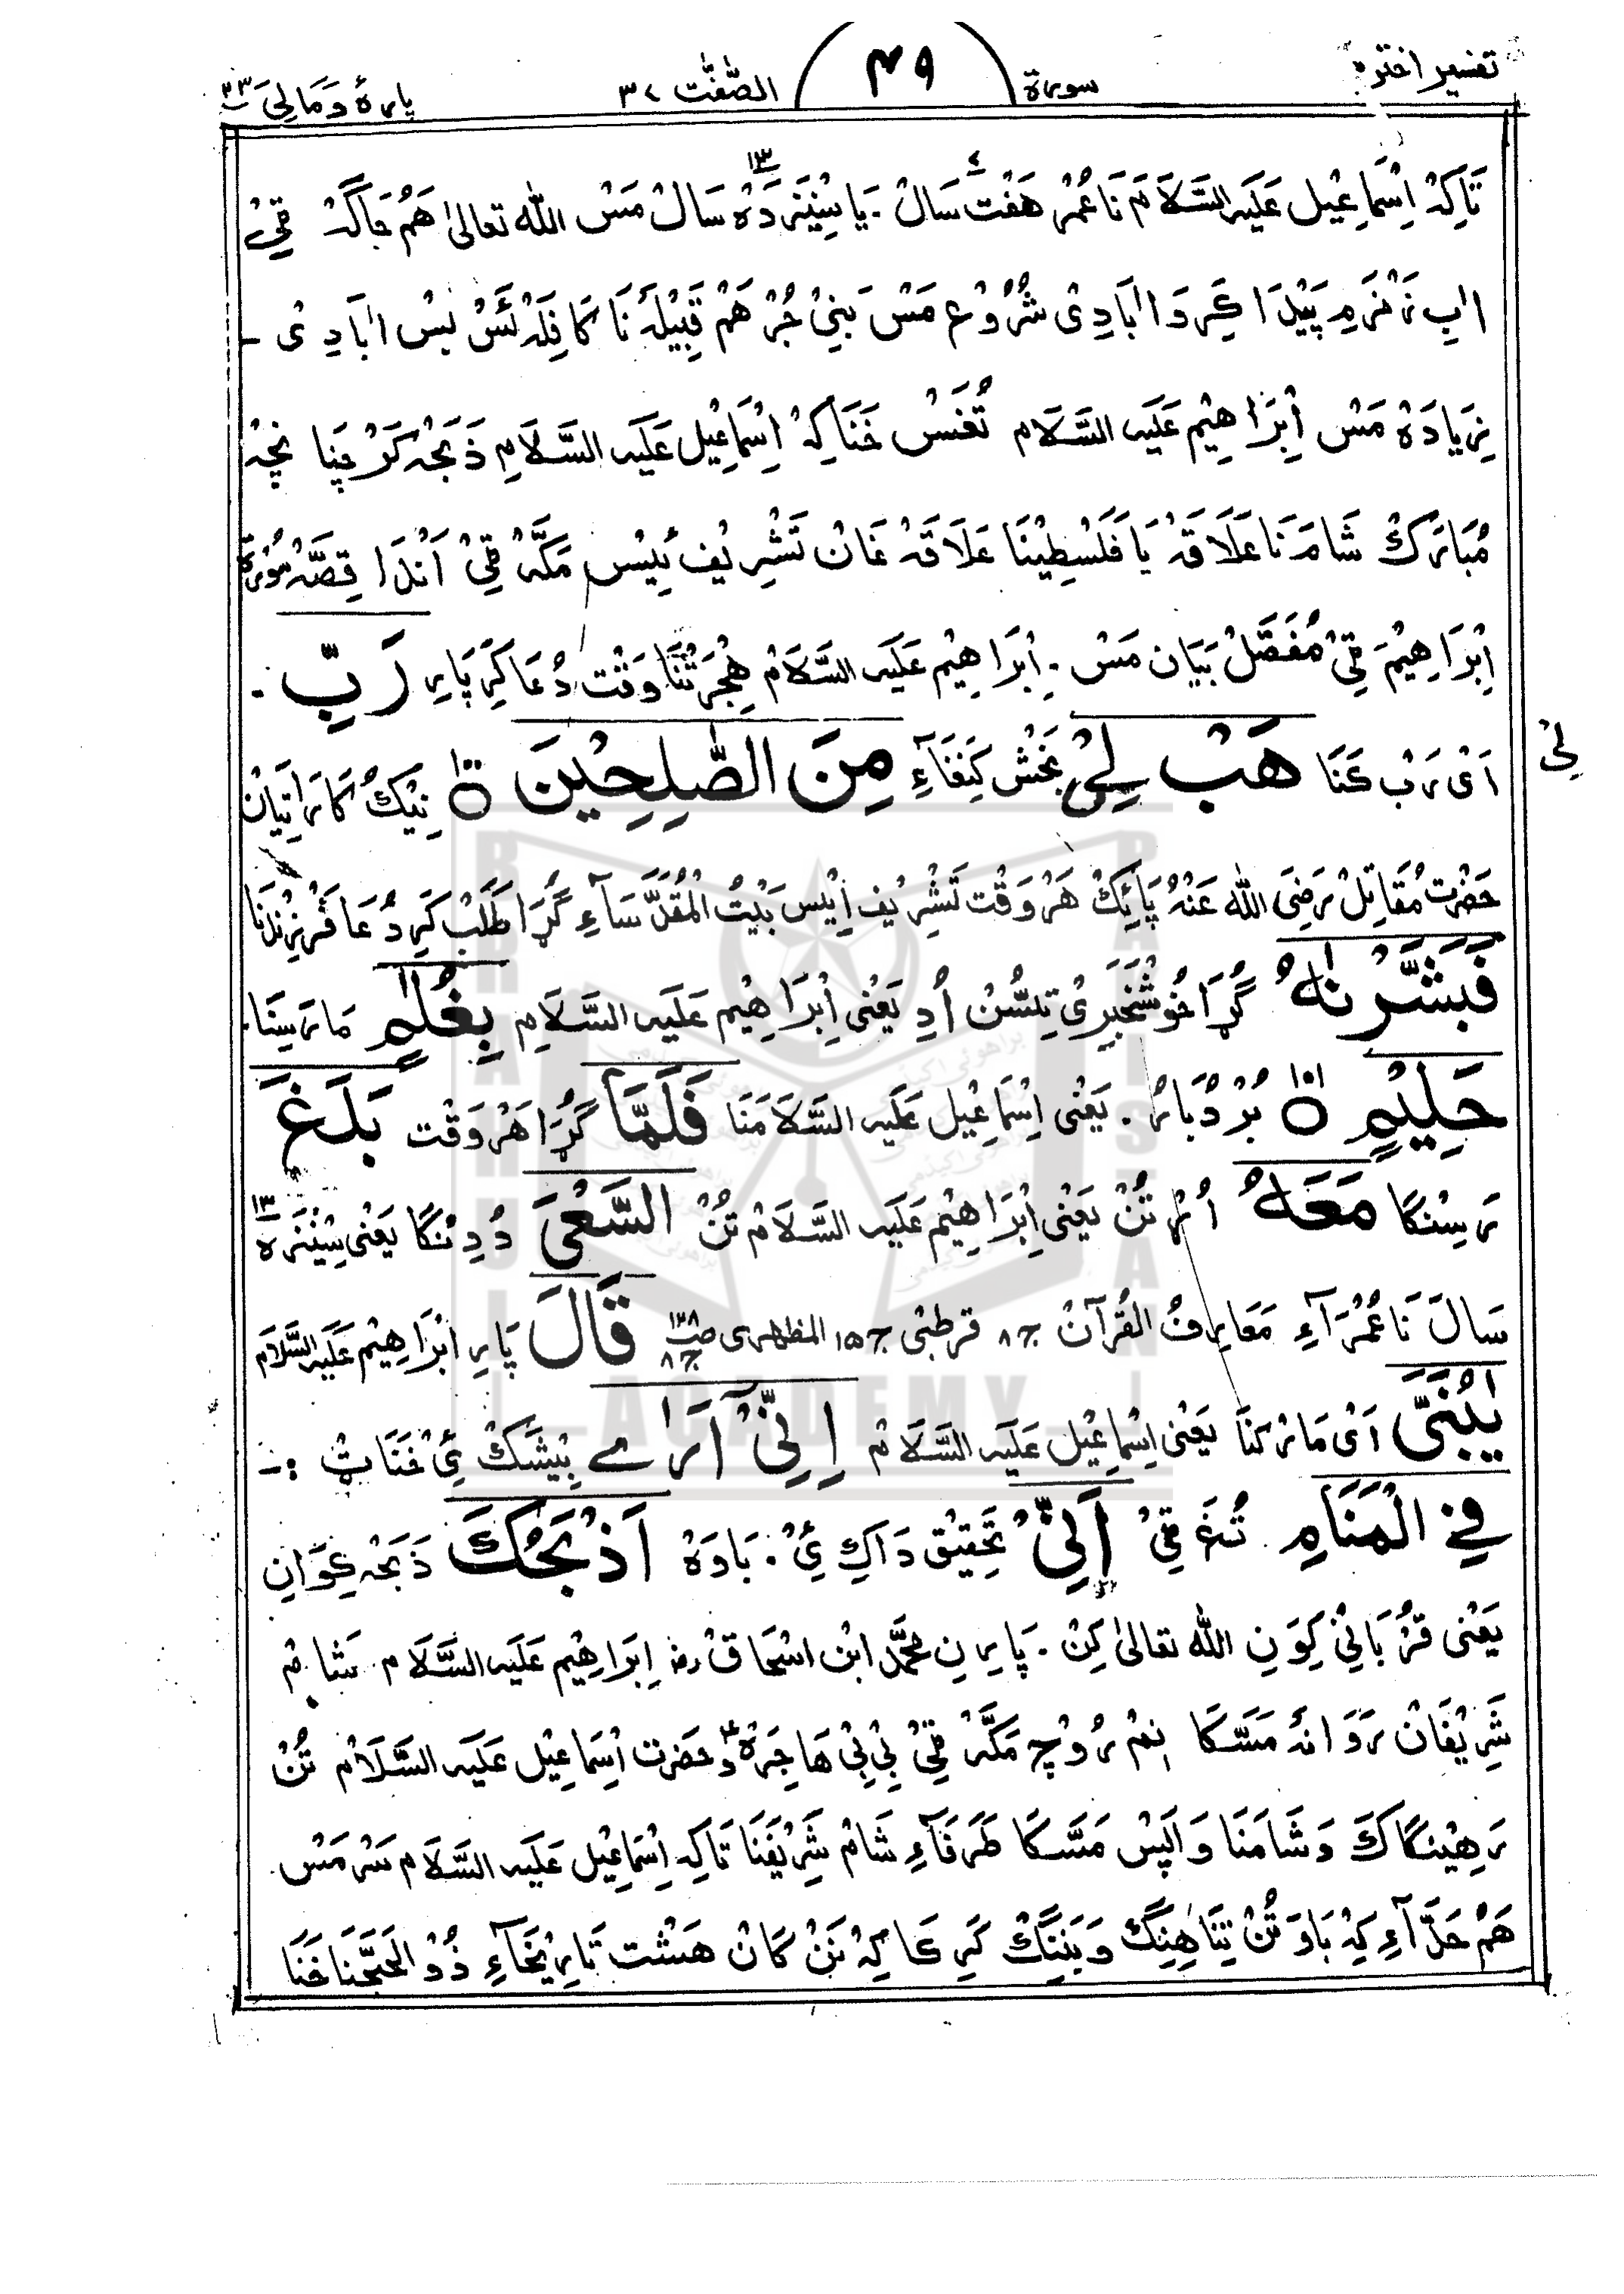 تفسیر اختره سورة ۴۹ الصّٰفّٰت ۳۷ پارهٔ وَمَالِیَ ۲۳
تَاکِہْ اِسْمَاعِیْل عَلَیہِ السَّلَامَ نَا عُمْر هَفْت ۷ سَالْ . یَا سِیْنِزْدَہْ ۱۳ سَالْ مَسْ اللّٰہ تعالیٰ هَمُ جَاگَہْ ٹِیْ
اٰبِ زَمْزَمِ پَیْدَا کَرِ وَ اٰبَادِیْ شُرُوْع مَسْ بَنِیْ جُرْهَمْ قَبِیْلَہ نَا کَافِلَہْ ئَسْ بِسْ اٰبَادِیْ -
زِیَادَہْ مَسْ اِبْرَاهِیْم عَلَیہِ السَّلَام تُغَسْ خَنَا کِہْ اِسْمَاعِیْل عَلَیہِ السَّلَامِ ذَبْحہ کَرْ
مُبَارَکْ شَامَ نَا عَلَاقَہْ یَا فَلَسْطِیْنَا عَلَاقَہْ غَانْ تَشْرِیْف ئیْس مَکَّہْ ٹِیْ اَنْدَا قِصَّہْ سُوْرَة
اِبْرَاهِیْمَ ٹِیْ مُفَصَّلْ بَیَان مَسْ . اِبْرَاهِیْم عَلَیہِ السَّلَامْ هِجْرَتْنَا وَقْت دُعَا کَرِ پَارِ رَبِّ .
اَیْ رَبْ کَنَا هَبْ لِیْ بَخْش کَنِغَآءِ مِنَ الصّٰلِحِیْنَ ۝۱۰۰ نِیْکْ کَارَاتِیَانْ
لِیْ
حَضْرَت مُقَاتِلْ رَضِیَ اللّٰہ عَنْہُ پَائِکْ هَرْ وَقْت تَشْرِیْف اِیْسْ بَیْتُ الْمُقَدَّسَآءِ گُڑَا طَلَبْ کَرِ دُعَا فَرْزِنْدنَا
فَبَشَّرْنٰہُ گُڑَا خُوشْخَبِرِیْ تِسُّنْ اُدِ یَعْنِی اِبْرَاهِیْم عَلَیہِ السَّلَامِ بِغُلٰمٍ مَارَسِنَا
حَلِیْمٍ ۝۱۰۱ بُرْدُبَارْ . یَعْنِی اِسْمَاعِیْل عَلَیہِ السَّلَامَنَا فَلَمَّا گُڑَا هَرْ وَقْت بَلَغَ
رَسِنْگَا مَعَہُ اُرْتُنْ یَعْنِی اِبْرَاهِیْم عَلَیہِ السَّلَامْ تُنْ السَّعْیَ دُدِنْگَا یَعْنِی سِیْنِزْدَہ ۱۳
سَالَ نَا عُمْرَآءِ مَعَارِفُ الْقُرْآنْ ج۸ قرطبی ج۱۵ المظهری ص۱۲۸ ج۸ قَالَ پَارِ اِبْرَاهِیْم عَلَیہِ السَّلَام
یٰبُنَیَّ اَیْ مَارْ کَنَا یَعْنِی اِسْمَاعِیْل عَلَیہِ السَّلَامْ اِنِّیْٓ اَرٰی بِیْشَکْ ئِیْ خَنَاتْ :-
فِی الْمَنَامِ تُغَ ٹِیْ اَنِّیْ تَحْقِیْق دَاکِ ئِیْ . بَاوَہْ اَذْبَحُکَ ذَبْحہ کِوَانِ
یَعْنِی قُرْبَانِیْ کِوَنِ اللّٰہ تعالیٰ کِنْ . پَارِنِ مُحَمَّد ابْن اسْحَاقْ رض اِبْرَاهِیْم عَلَیہِ السَّلَام شَامْ
شَرِیْفَانْ رَوَانَہ مَسَّکَا نِمْ رُوْچ مَکَّہْ ٹِیْ بِیْ بِیْ هَاجِرَہْ وَحَضْرَت اِسْمَاعِیْل عَلَیہِ السَّلَامْ تُنْ
رَهِیْنگَاکَ وَشَامَنَا وَاپِسْ مَسَّکَا طَرَفَآءِ شَامْ شَرِیْفَنَا تَاکِہ اِسْمَاعِیْل عَلَیہِ السَّلَام سَرْ مَسْ
هَمُ حَدَّآءِ کِہْ بَاوَ تُنْ تِنَا هِنِنْگ وَبَنِنْگ کَرِکَا کِہْ نَنْ کَانْ هَشْت تَارِیْخَآءِ ذُو الْحَجَّنَا خَنَا